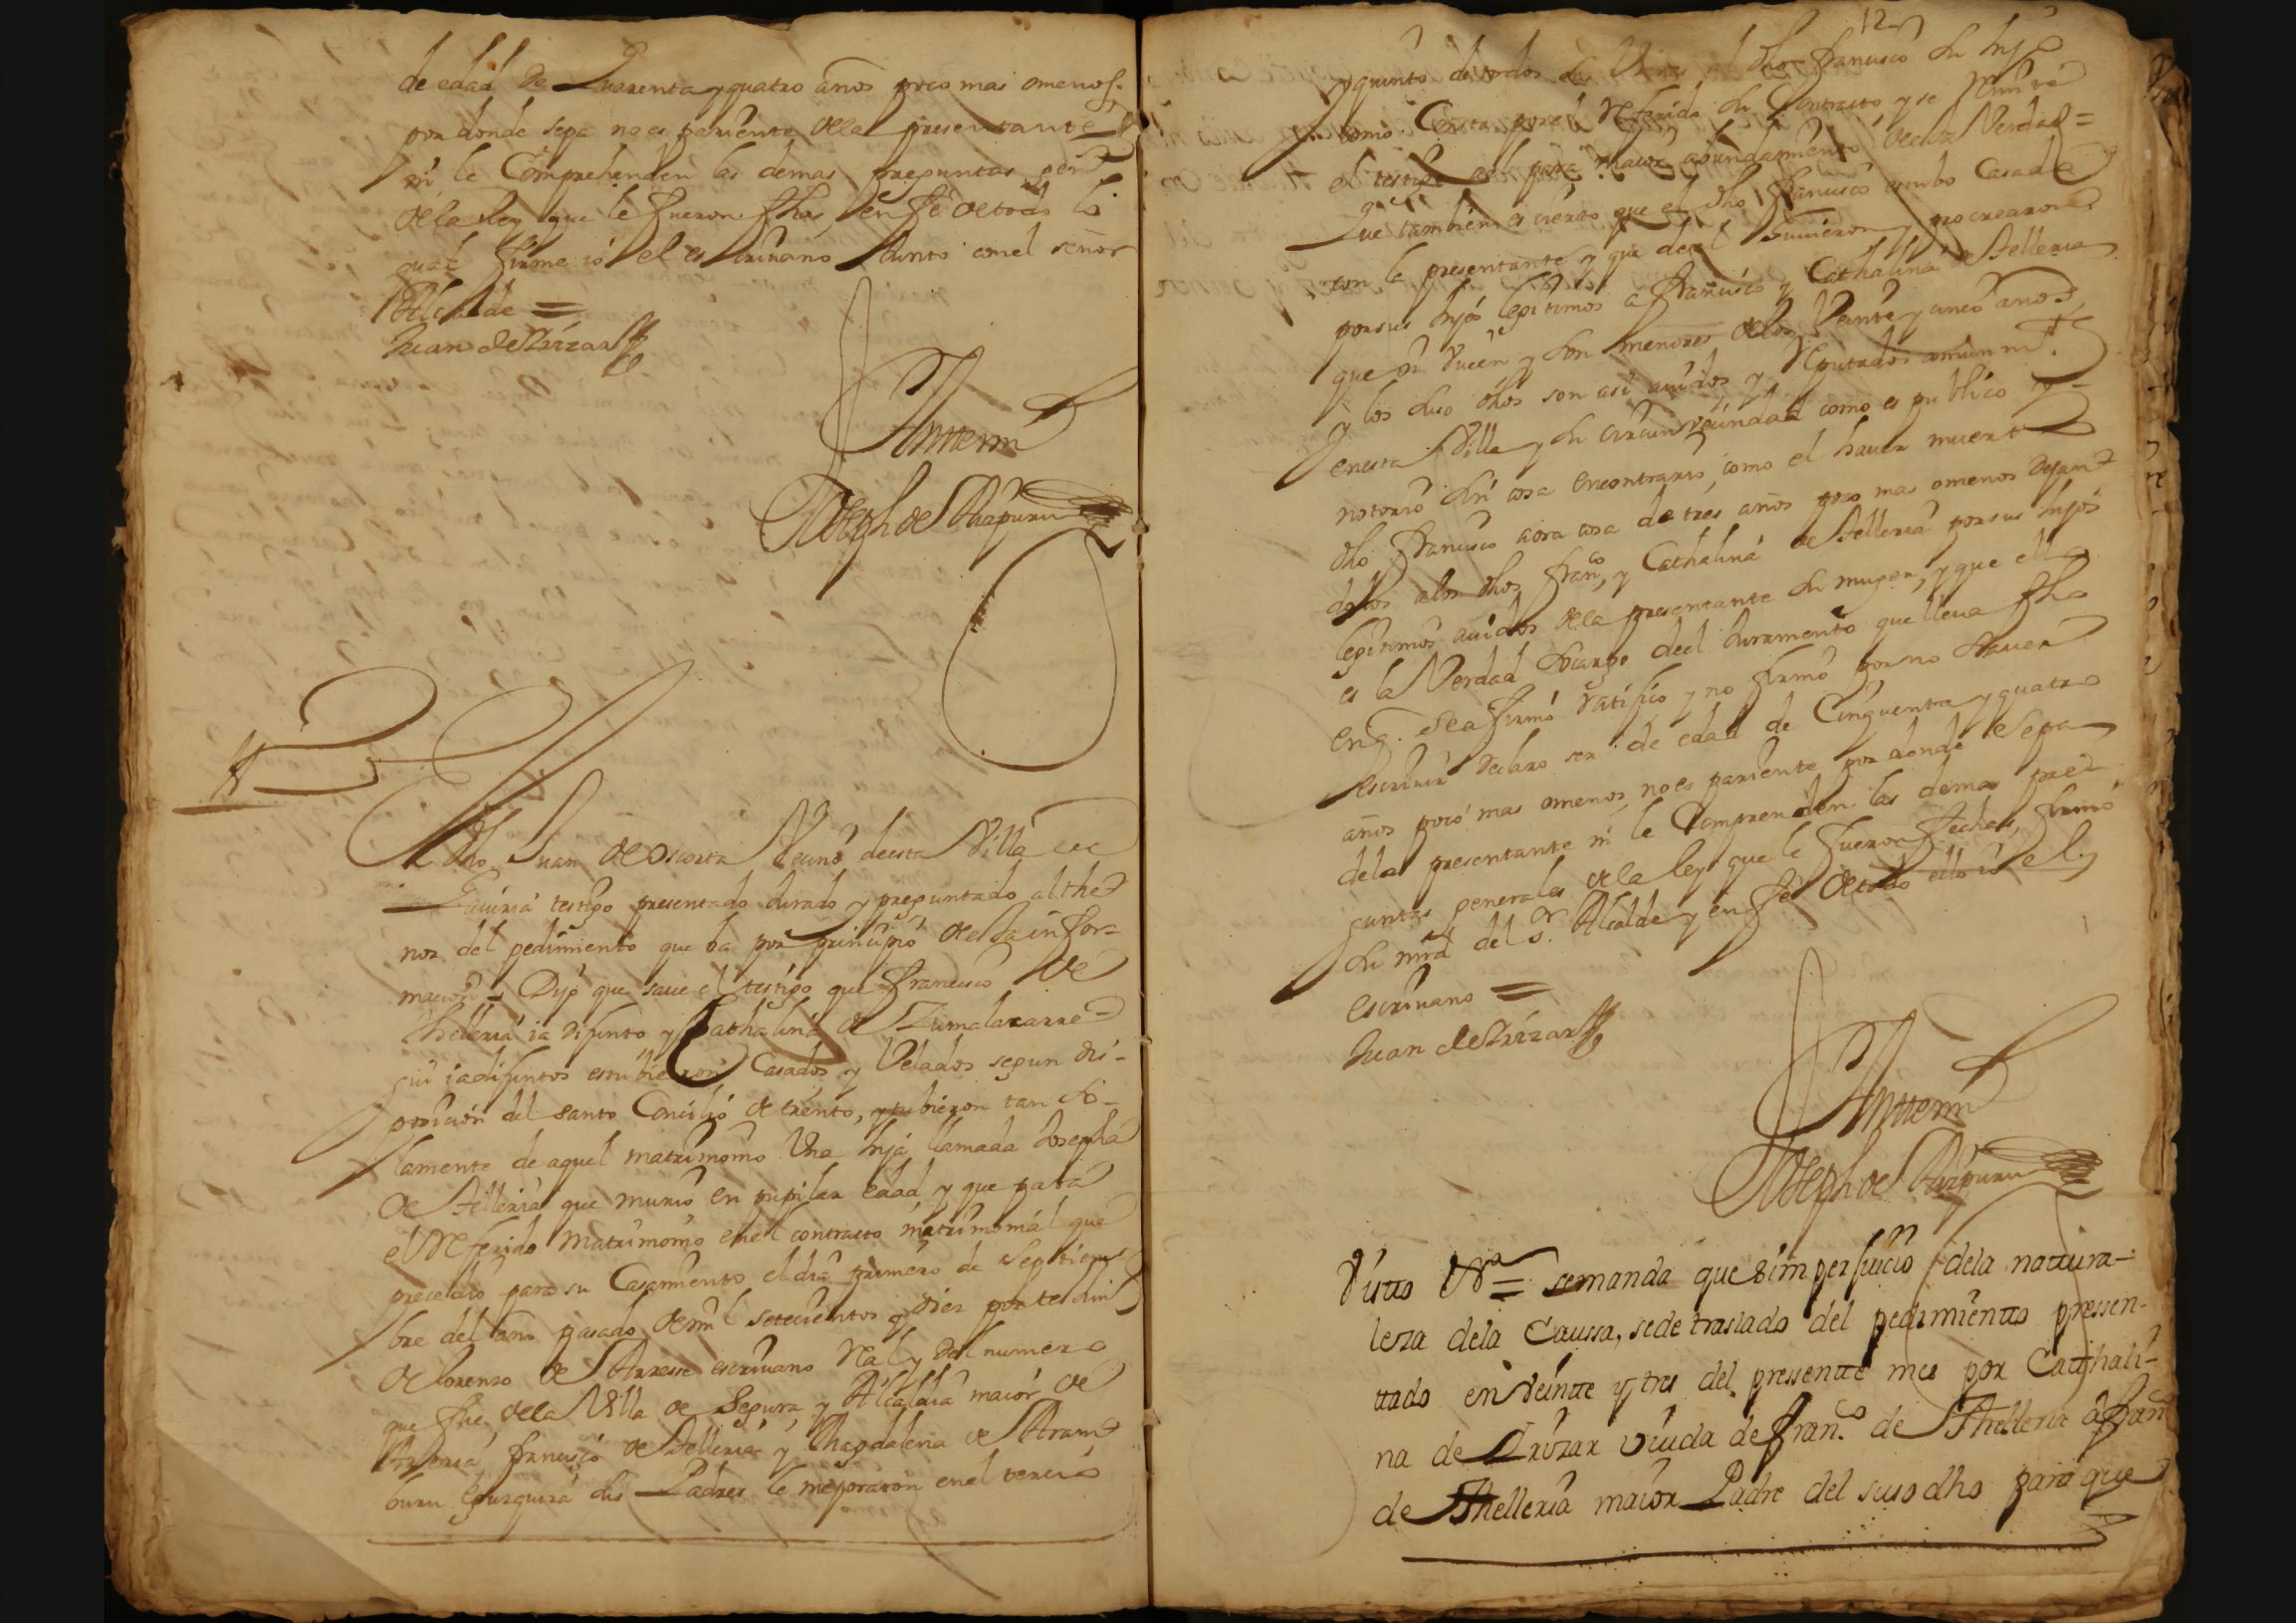 de edad de Quarenta y quatro años poco mas omenos
por donde sepa no es pariente dela presentante
ni le Comprehenden las demas preguntas gen
dela ley que le fueron fhas, en fe de todo lo
qual firme io el escriuano Junto conel señor
Alcalde =
Juan de Irizar
Antemi
Joseph de Aizpuru
El dho Juan de Oscorta Vecino deesta Villa de
Gauiria testigo presentado Jurado y preguntado althe
nor del pedimiento que ba por principio de esta infor=
macion = Dijo que saue el testigo que francisco de
thelleria ia difunto y Cathalina de Zumalacarre=
gui iadifuntos estubieron Casados y Velados segun dis-
posicion del santo Concilio de trento, y tubieron tan so-
lamente de aquel matrimonio Una hija llamada Josepha
de telleria que murio en pupilar edad y que para
el Referido matrimonio enel contracto matrimonial que
precedio para su Casamiento el dia primero de septiem
bre del año pasado demil setecientos y diez por testim
de lorenzo de Arrese escriuano Real y del numero
que fue dela Villa de Segura y Alcaldia maior de
Arreria francisco de telleria y Magdalena de Aram
buru Eguzquiza sus Padres le mejoraron enel tercio
12
y quinto de todos sus Vienes al dho francisco su hijo
como Consta por el Referido su Contracto, y se Remite
el testigo a el para maior abundamiento desta Verdad =
Que tambien es cierto que el dho francisco estubo Casado
con la presentante y que deel tuuieron y procrearon
por sus hijos legitimos a francisco y Cathalina de telleria
que oi viuen y son menores delos Veinte y cinco años,
y los suso dhos son asi auidos y Reputados comunmte
enesta Villa y su circunvecindad como es publico y
notorio sin cosa encontrario, como el hauer muerto
dho francisco aora cosa de tres años poco mas omenos dejan
dolos alos dhos frano, y Cathalina de telleria por sus hijos
legitimos auidos dela presentante su muger, y que ello
es la Verdad socargo deel Juramento que lleua fho
enq. seafirmo ratifico y no firmo por no sauer
escriuir declaro ser de edad de Cinquenta y quatro
años poco mas omenos no es pariente por donde Sepa
dela presentante ni le Comprenden las demas pre
guntas generales dela ley que le fueron fechas, firmo
su mrd del sr. Alcalde y en fe de todo ello io el
escriuano =
Juan de Irizar
Antemi
Joseph de Aizpuru
Visto Ra = semanda que sim perjuicio dela nattura-
leza dela Caussa, sede traslado del pedimientto pressen-
ttado en veintte y tres del pressentte mes por Catthali-
na de Irizar viuda de Frano. de Thelleria a Frano
de Thelleria maior Padre del suso dho para que